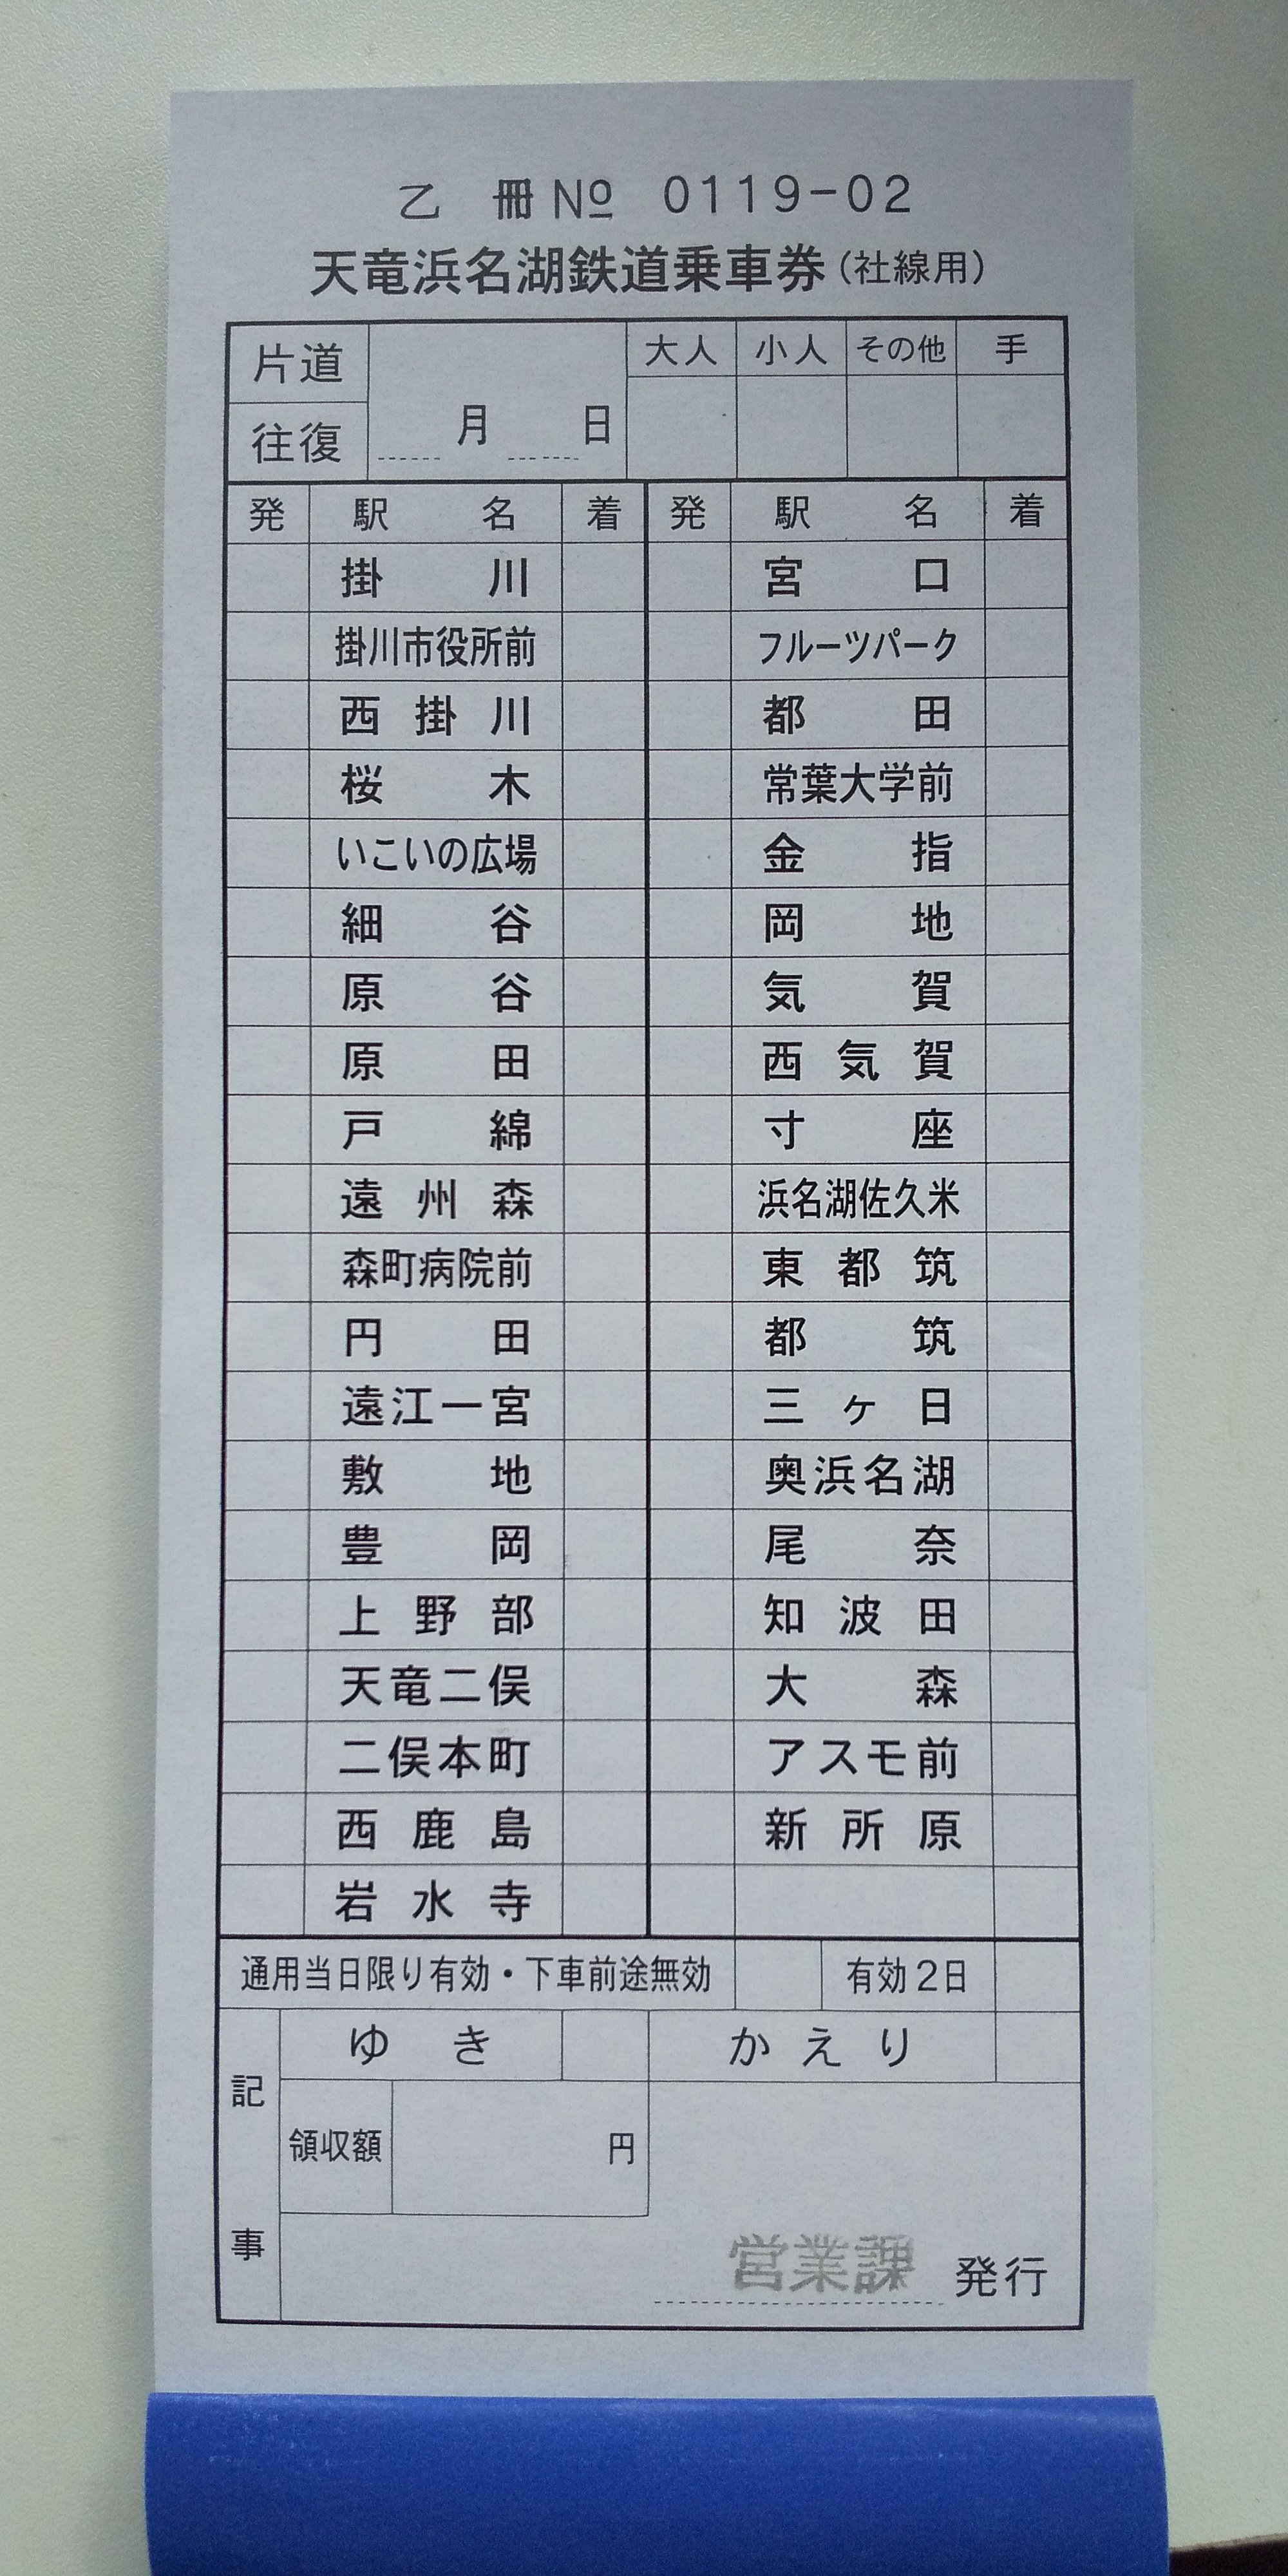 乙 冊 № 0119-02
天竜浜名湖鉄道乗車券(社線用)
片道 大人 小人 その他 手
往復 月 日
発 駅名 着 発 駅名 着
掛川 宮口
掛川市役所前 フルーツパーク
西掛川 都田
桜木 常葉大学前
いこいの広場 金指
細谷 岡地
原谷 気賀
原田 西気賀
戸綿 寸座
遠州森 浜名湖佐久米
森町病院前 東都筑
円田 都筑
遠江一宮 三ヶ日
敷地 奥浜名湖
豊岡 尾奈
上野部 知波田
天竜二俣 大森
二俣本町 アスモ前
西鹿島 新所原
岩水寺
通用当日限り有効・下車前途無効 有効2日
記事 ゆき かえり
領収額 円
営業課 発行